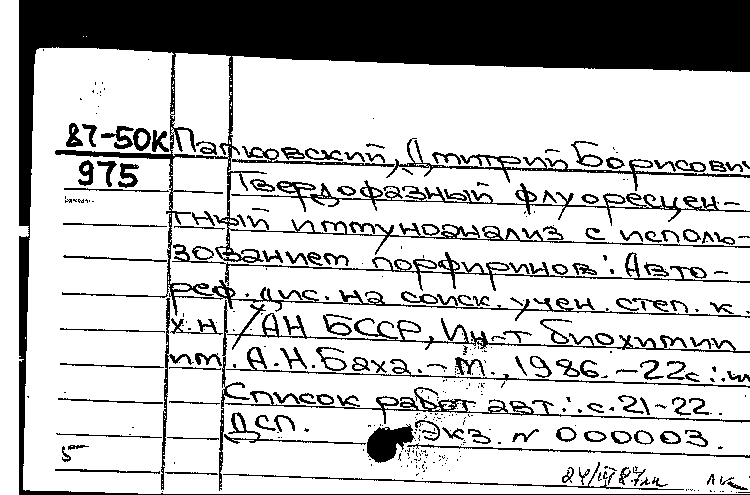 87-50К Папковский, Дмитрий Борисович
975 Твердофазный флуоресцен-
тный иммуноанализ с исполь-
зованием порфиринов: Авто-
реф. дис. на соиск. учен. степ. к.
х.н. /АН БССР, Ин-т биохимии
им. А.Н.Баха.-М., 1986.-22с.:и
Список работ авт.: с.21-22.
ДСП. Экз. N 000003.
5